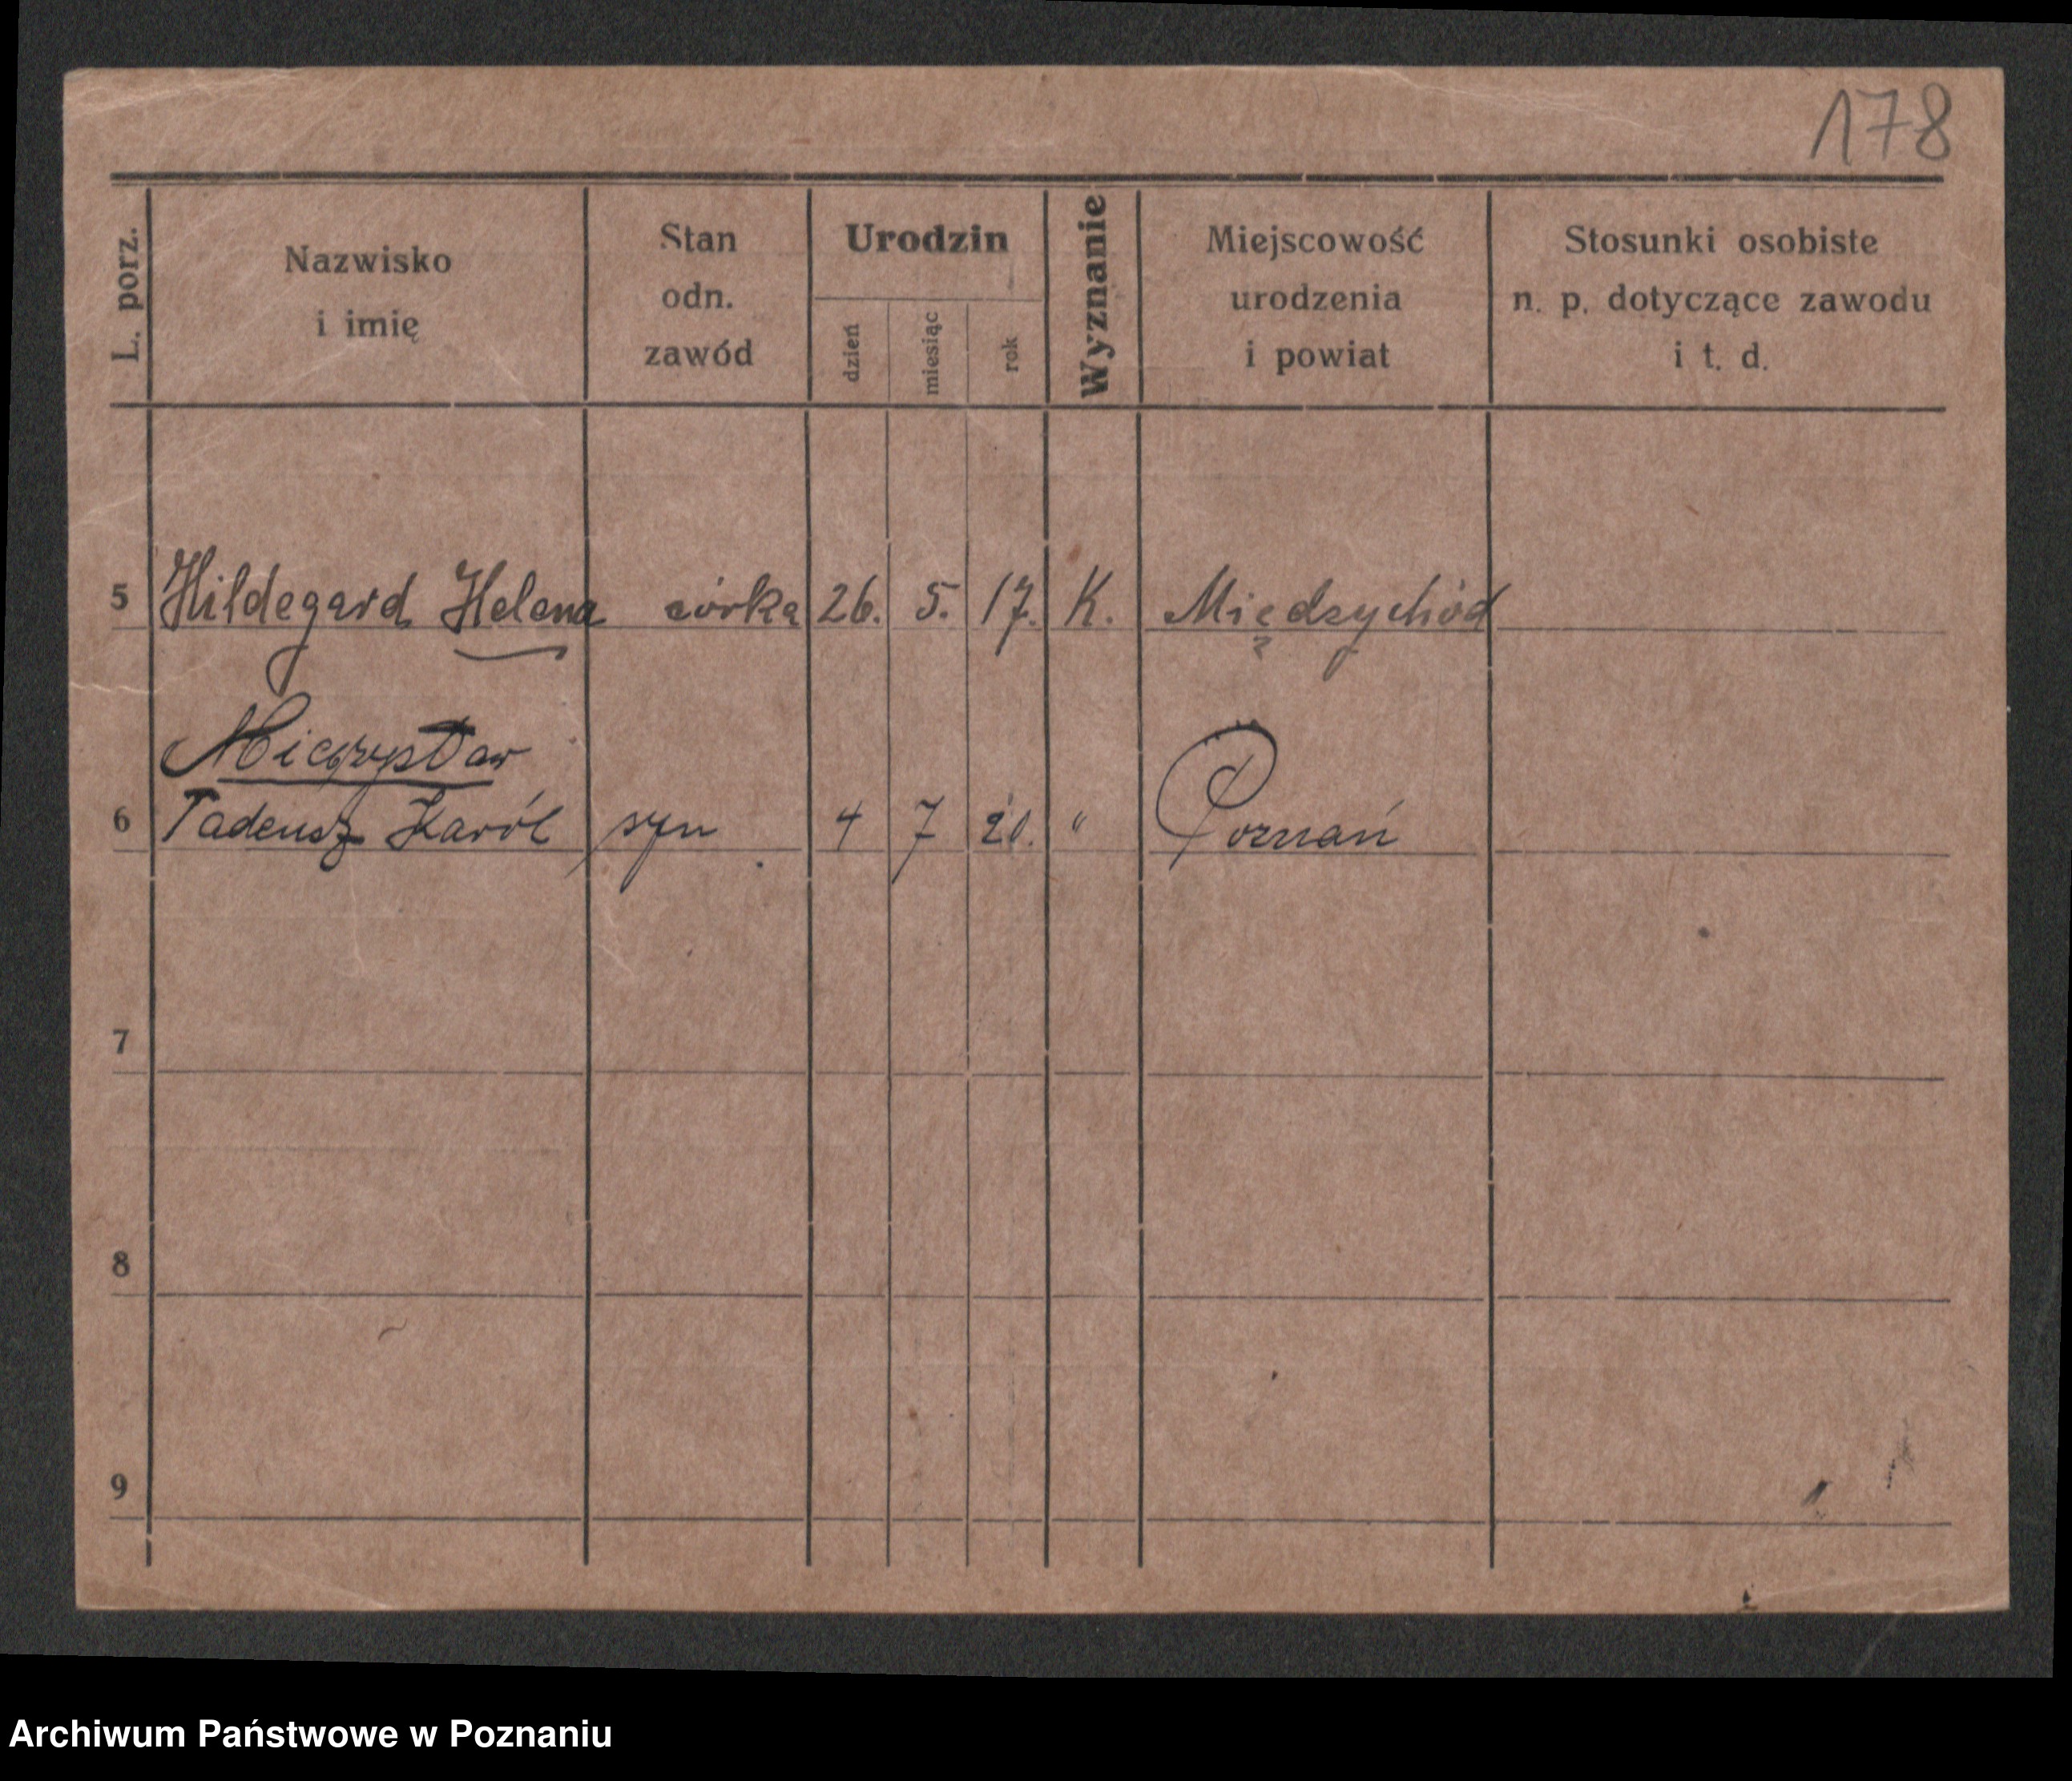 178
L. porz.
Nazwisko
i imię
Stan
odn.
zawód
Urodzin
dzień
miesiąc
rok
Wyznanie
Miejscowość
urodzenia
i powiat
Stosunki osobiste
n. p. dotyczące zawodu
i t. d.
5 Hildegard Helena córka 26. 5. 17. K. Międzychód
Mieczysław
6 Tadeusz Karól syn 4 7 20. " Poznań
7
8
9
Archiwum Państwowe w Poznaniu